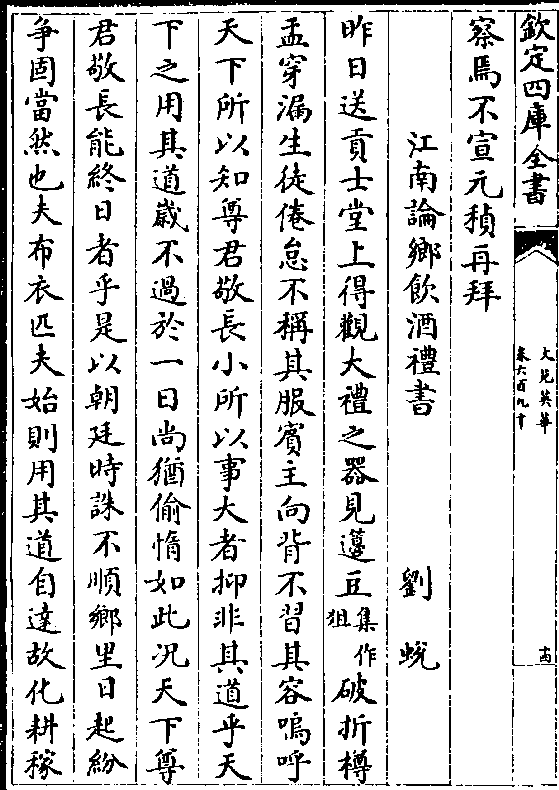 欽定四庫全書
文苑英華
卷六百九十
古
察焉不宣元稹再拜
江南論鄉飲酒禮書 劉蛻
昨日送貢士堂上得觀大禮之器見籩豆集作狙破折樽
盂穿漏生徒倦怠不稱其服賓主向背不習其容嗚呼
天下所以知尊君敬長小所以事大者抑非其道乎天
下之用其道歲不過於一日尚猶偷惰如此况天下尊
君敬長能終日者乎是以朝廷時誅不順鄉里日起紛
争固當然也夫布衣匹夫始則用其道自達故化耕稼